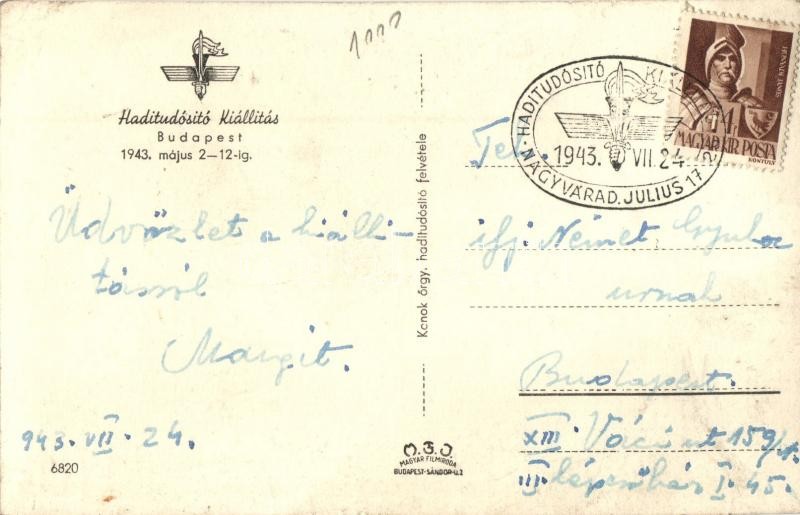 Haditudósitó Kiállitás
Budapest
1943. május 2—12-ig.
Üdvözlet a kiálli-
tásról
Margit.
943. VII. 24.
6820
Konok őrgy. haditudósító felvétele
M.F.I.
MAGYAR FILMIRODA
BUDAPEST-SÁNDOR-U.2
HADITUDÓSITÓ
1943. VII 24
NAGYVÁRAD. JULIUS 17
HUNYADI JÁNOS
MAGYAR KIR. POSTA
KONTULY
Tek.
ifj. Német Gyula
urnak
Budapest.
XIII Váci ut 159/
III lépcsőház I. 45.